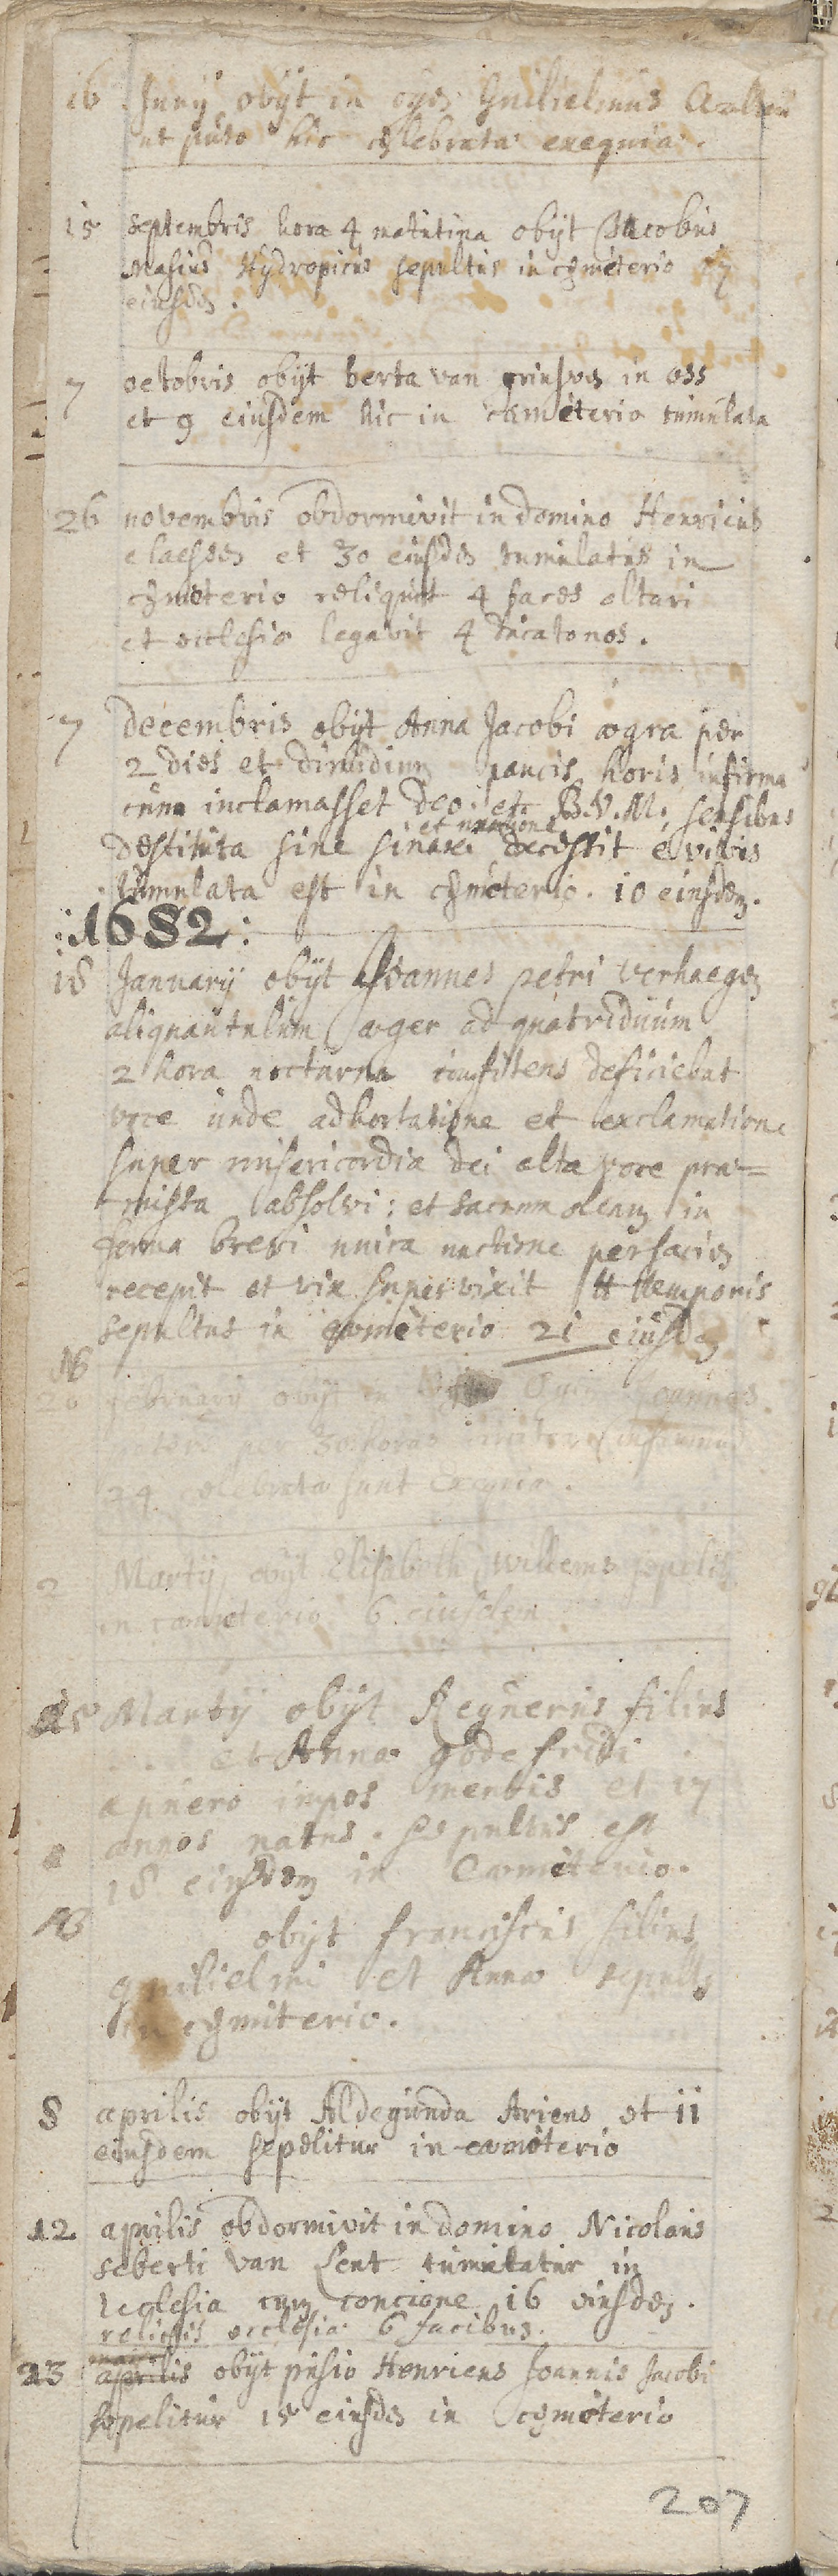 16 Junij obijt in oyen Guilielmus
ut puto hic celebratae exequiae.
15 Septembris hora 4 matutina obijt Jacobus
Masius Hydropicus sepultus in cemeterio 17
eiusdem.
7 octobris obijt berta van in oss
et 9 eiusdem hic in caemeterio tumulata
26 novembris obdormivit in domino Henricus
claessen et 30 eiusdem tumulatus in
cemeterio reliquit 4 faces altari
et ecclesiae legavit 4 ducatonos.
7 decembris obijt Anna Jacobi aegra per
2 dies et dimidium paucis horis infirma
cum inclamasset deo etc B.V.M. sensibus
et unctione
destituta sine sinaxi decessit e vivis
tumulata est in cemeterio. 10 eiusdem.
:1682:
18 Januarij obijt Joannes petri verhaegen
aliquantulum aeger ad quatriduum
2 hora nocturna confitens deficiebat
voce unde adhortatione et exclamatione
super misericordia dei alta voce prae=
missa absolvi: et sacrum oleum in
forma brevi unica unctione per faciem
recepit et vix supervixit temporis
sepultus in caemeterio 21 eiusdem
18
20 februarij obijt in Oyen Joannes
per 30 horas
24 celebratae sunt Exequiae.
2 Martij obijt Elisabeth Willems sepelitur
in caemeterio 6 eiusdem
15 Martij obijt Reynerus filius
et Annae godefridi
a puero impos mentis et 17
annos natus. sepultus est
18 eiusdem in Caemiterio.
18 obijt franciscus filius
guilielmi et Annae sepultus
in cemiterio.
8 aprilis obijt Aldegunda Ariens et 11
eiusdem sepelitur in caemeterio
12 aprilis obdormivit in domino Nicolaus
seberti van Lent tumulatur in
Ecclesia cum concione 16 eiusdem.
relictis ecclesiae 6 facibus.
13 aprilis obijt pusio Henricus Joannis Jacobi
sepelitur 15 eiusdem in cemeterio
207